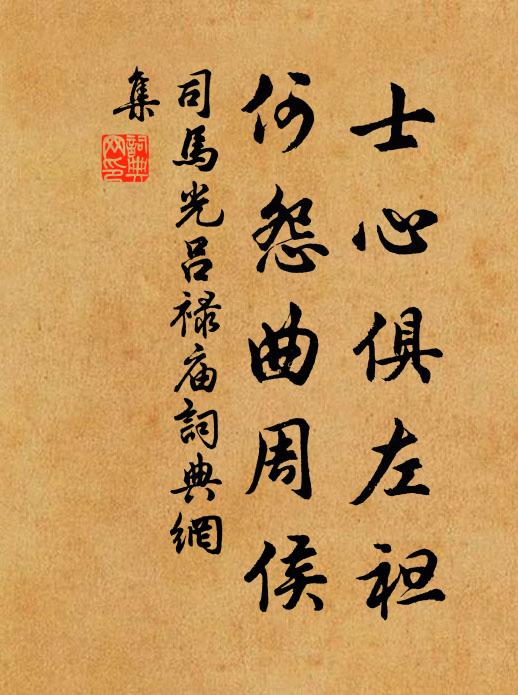 士心俱左袒
何怨曲周侯
司馬光吕禄庙詞典網
集
詞典
网印